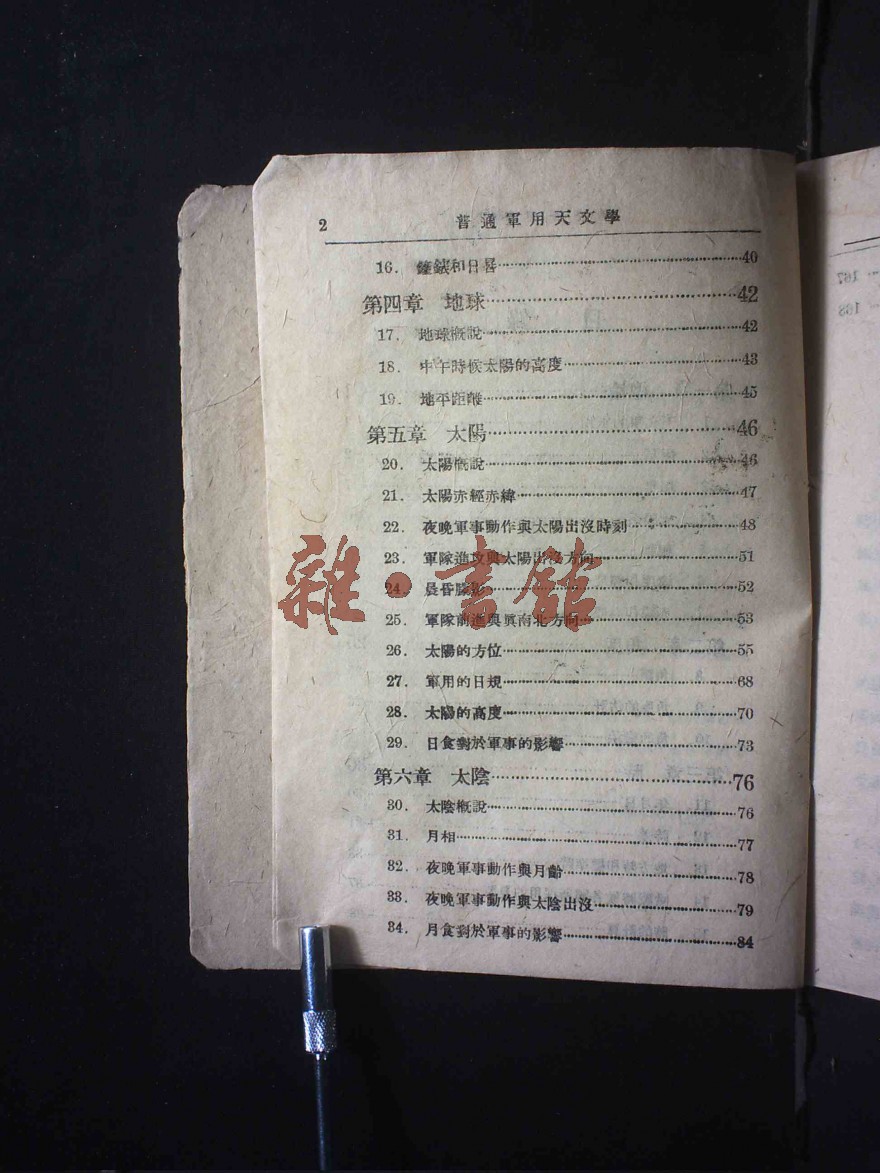 2 普通軍用天文學
16. 鐘錶和日晷 40
第四章 地球 42
17. 地球概說 42
18. 中午時候太陽的高度 43
19. 地平距離 45
第五章 太陽 46
20. 太陽概說 46
21. 太陽赤經赤緯 47
22. 夜晚軍事動作與太陽出沒時刻 48
23. 軍隊進攻與太陽出沒方向 51
24. 晨昏朦影 52
25. 軍隊前進與眞南北方向 53
26. 太陽的方位 55
27. 軍用的日規 68
28. 太陽的高度 70
29. 日食對於軍事的影響 73
第六章 太陰 76
30. 太陰概說 76
31. 月相 77
32. 夜晚軍事動作與月齡 78
33. 夜晚軍事動作與太陰出沒 79
34. 月食對於軍事的影響 84
雜·書館
167
168